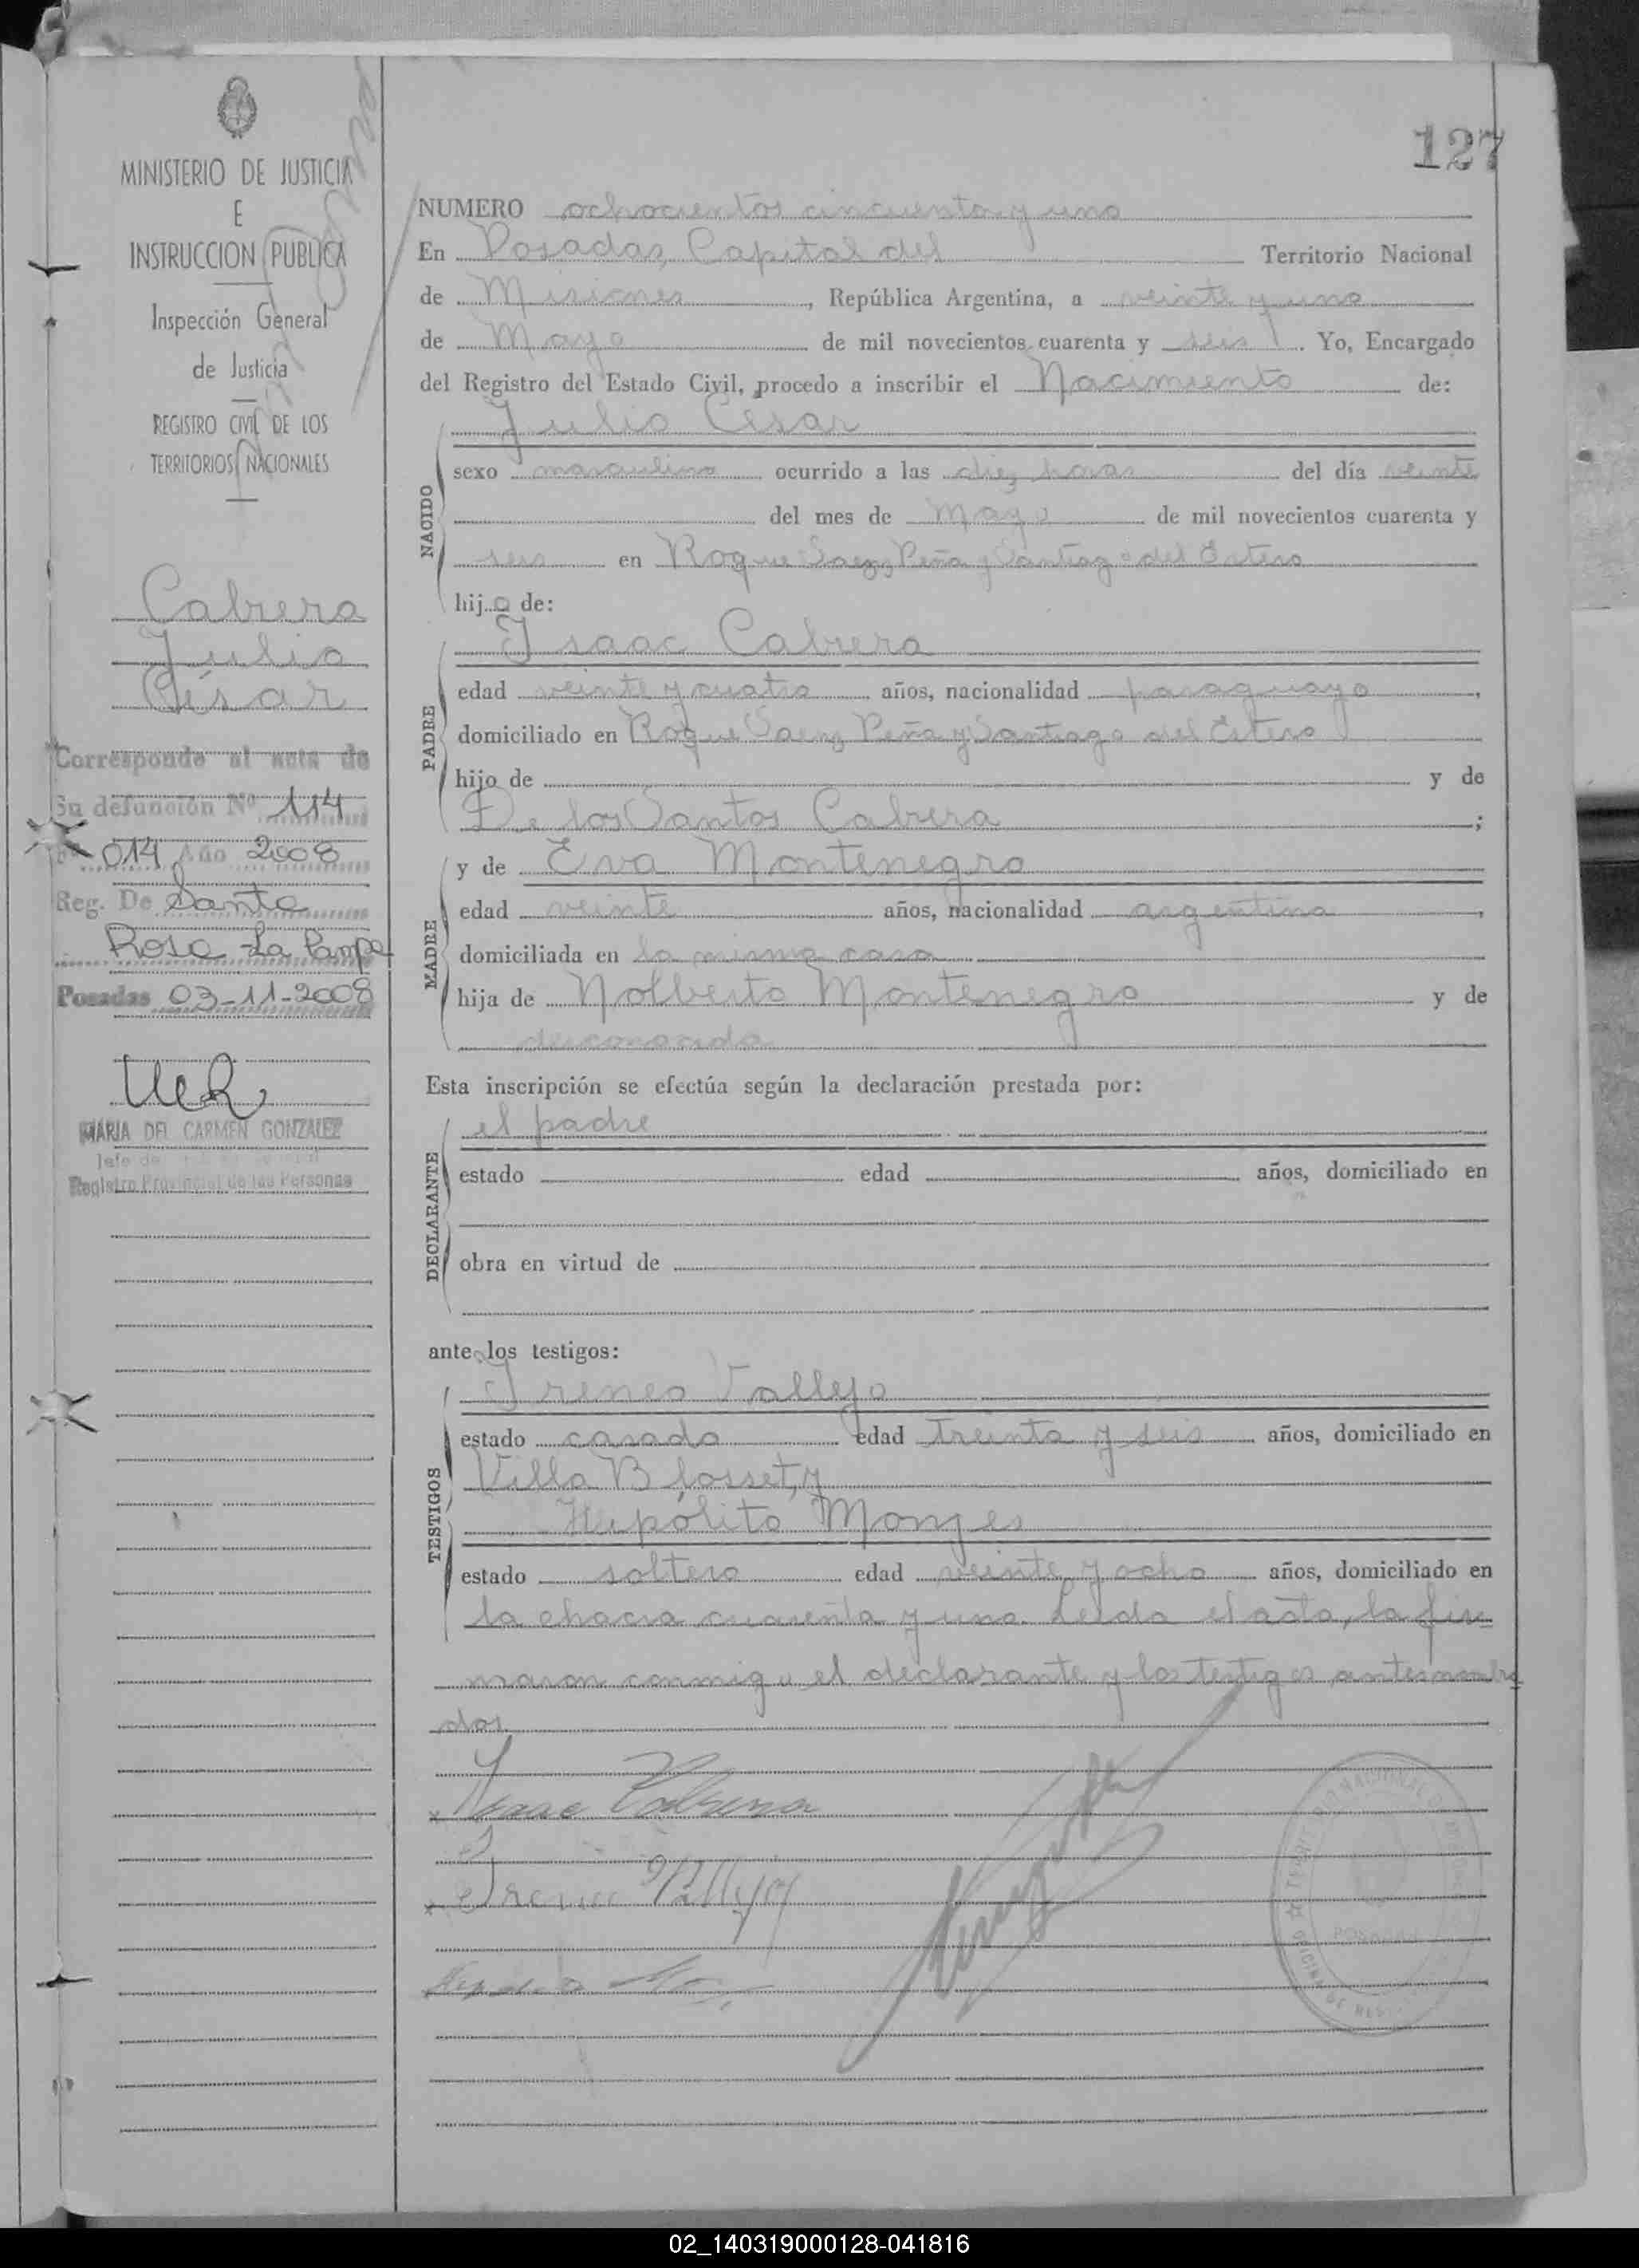 127
MINISTERIO DE JUSTICIA
E
INSTRUCCION PUBLICA
Inspección General
de Justicia
REGISTRO CIVIL DE LOS
TERRITORIOS NACIONALES
Cabrera
Julio
César
Corresponde al acta de
Su defunción Nº 114
014 Año 2008
Reg. De Santa
Rosa - La Pampa
Posadas 03-11-2008
MARIA DEL CARMEN GONZALEZ
Jefe de
Registro Provincial de las Personas
NUMERO ochocientos cincuenta y uno
En Posadas, Capital del Territorio Nacional
de Misiones, República Argentina, a veinte y uno
de Mayo de mil novecientos cuarenta y seis. Yo, Encargado
del Registro del Estado Civil, procedo a inscribir el Nacimiento de:
NACIDO
Julio César
sexo masculino ocurrido a las diez horas del día veinte
del mes de Mayo de mil novecientos cuarenta y
seis en Roque Saenz Peña y Santiago del Estero
hijo de:
PADRE
Isaac Cabrera
edad veinte y cuatro años, nacionalidad paraguayo,
domiciliado en Roque Saenz Peña y Santiago del Estero
hijo de y de
De los Santos Cabrera;
MADRE
y de Eva Montenegro
edad veinte años, nacionalidad argentina,
domiciliada en la misma casa
hija de Nolberto Montenegro y de
desconocida
Esta inscripción se efectúa según la declaración prestada por:
DECLARANTE
el padre
estado edad años, domiciliado en
obra en virtud de
ante los testigos:
TESTIGOS
Ireneo Vallejo
estado casado edad treinta y seis años, domiciliado en
Villa Blosset, y
Hipólito Monges
estado soltero edad veinte y ocho años, domiciliado en
la chacra cuarenta y uno. Leída el acta, la fir-
maron conmigo el declarante y los testigos antesnombra
dos
Isaac Cabrera
Ireneo Vallejo
POSADAS
02_140319000128-041816